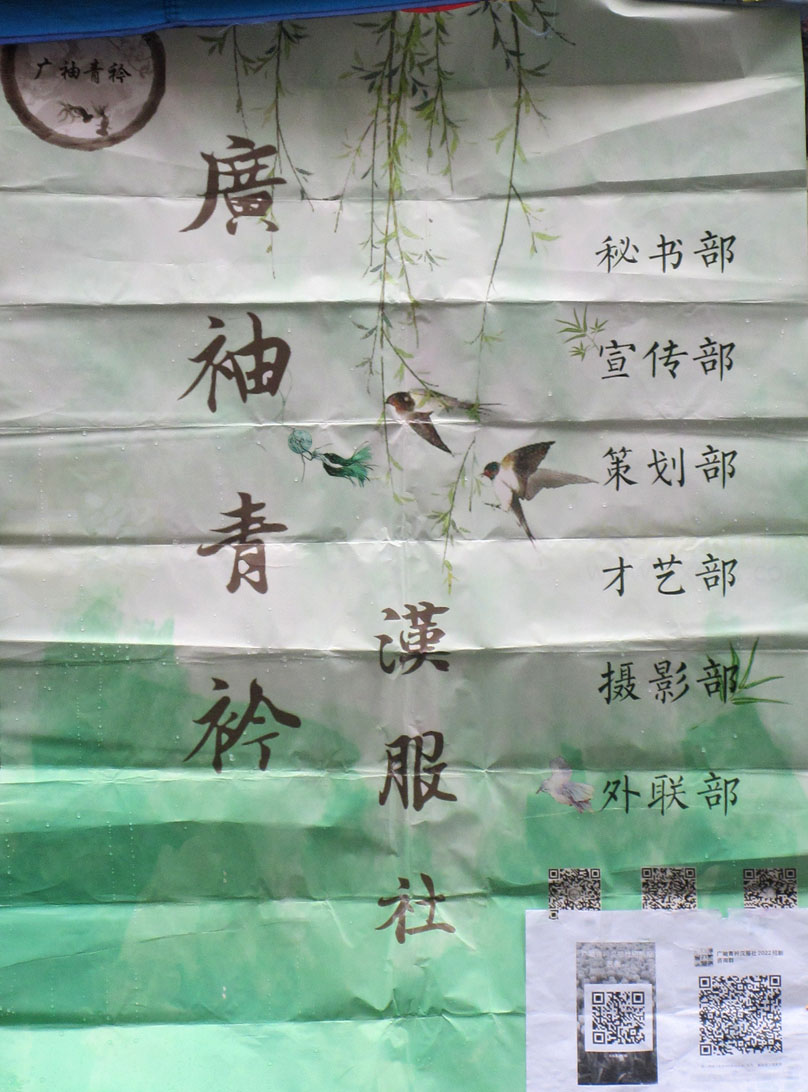 广袖青衿
廣袖青衿
漢服社
秘书部
宣传部
策划部
才艺部
摄影部
外联部
广袖青衿汉服社2022招新
咨询群